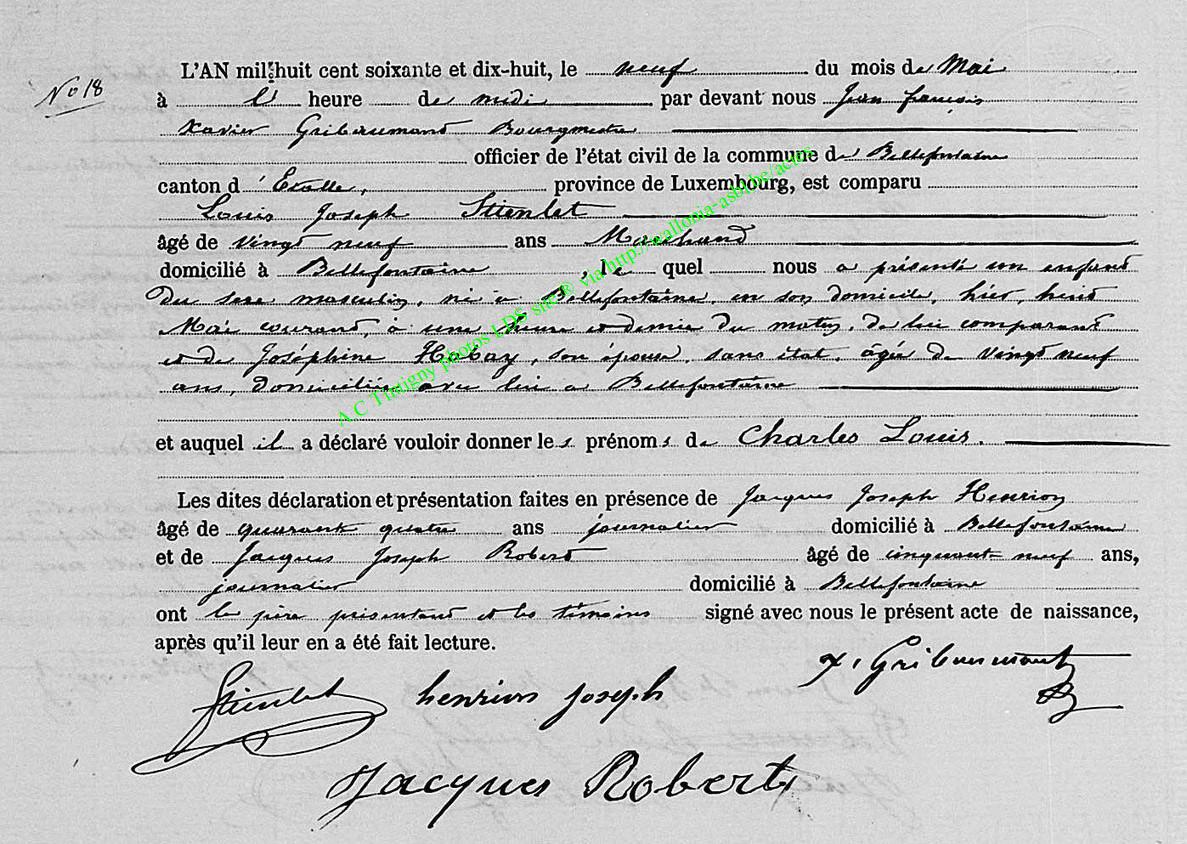 No 18
L'AN mil huit cent soixante et dix-huit, le neuf du mois de Mai
à l' heure de midi par devant nous Jean françois
Xavier Gribaumont Bourgmestre
officier de l'état civil de la commune de Bellefontaine
canton d'Etalle, province de Luxembourg, est comparu
Louis Joseph Stienlet
âgé de vingt neuf ans Marchand
domicilié à Bellefontaine, le quel nous a présenté un enfant
du sexe masculin, né à Bellefontaine, en son domicile, hier, huit
Mai courant, à une heure et demie du matin, de lui comparant
et de Joséphine Habay, son épouse, sans état, âgée de vingt neuf
ans, domiciliée avec lui à Bellefontaine
et auquel il a déclaré vouloir donner les prénoms de Charles Louis.
Les dites déclaration et présentation faites en présence de Jacques Joseph Henrion
âgé de quarante quatre ans journalier domicilié à Bellefontaine
et de Jacques Joseph Robert âgé de cinquante neuf ans,
journalier domicilié à Bellefontaine
ont le père présentant et les témoins signé avec nous le présent acte de naissance,
après qu'il leur en a été fait lecture.
X. Gribaumont
Stienlet henrion joseph
Jacques Robert
A C Tintigny photos LDS sur via http://wallonia-asbl.be/actes